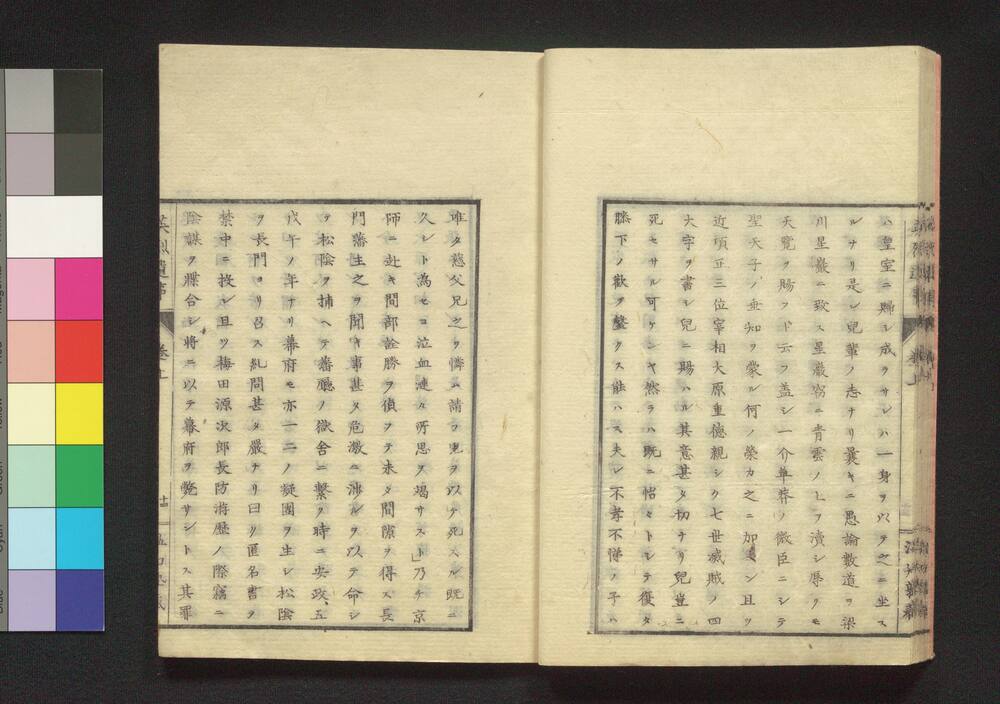 ハ皇室ニ歸シ成ラサレハ一身ヲ以テ之ニ坐ス
ルナリ是レ兒輩ノ志ナリ曩キニ愚論數道ヲ梁
川星巖ニ致ス星巖窃ニ青雲ノ上ヲ瀆シ辱クモ
天覽ヲ賜フト云フ蓋シ一介草莽ノ微臣ニシテ
聖天子ノ垂知ヲ蒙ル何ノ榮カ之ニ加ヘン且ツ
近頃正三位宰相大原重德親シク七世滅賊ノ四
大字ヲ書シ兒ニ賜ハル其意甚タ切ナリ兒豈ニ
死セサル可ケンヤ然ラハ既ニ怡々トシテ復タ
膝下ノ歡ヲ罄クス能ハス夫レ不孝不悌ノ子ハ
唯タ慈父兄之ヲ憐ニ請フ兒ヲ以テ死スル既ニ
久シト為セヨ泣血漣々所思ヲ竭サスト」乃チ京
師ニ赴キ間部詮勝ヲ偵フテ未タ間隙ヲ得ス長
門藩士之ヲ聞キ事甚タ危激ニ渉ルヲ以テ命シ
テ松陰ヲ捕ヘテ藩廳ノ獄舍ニ繫ク時ニ安政五
戊午ノ年ナリ幕府モ亦一二ノ凝團ヲ生シ松陰
ヲ長門ヨリ召ス糺問甚タ嚴ナリ曰ク匿名書ヲ
禁中ニ投シ且ツ梅田源次郎長防游歴ノ際竊ニ
陰謀ヲ牒合シ將ニ以テ幕府ヲ斃サントス其罪